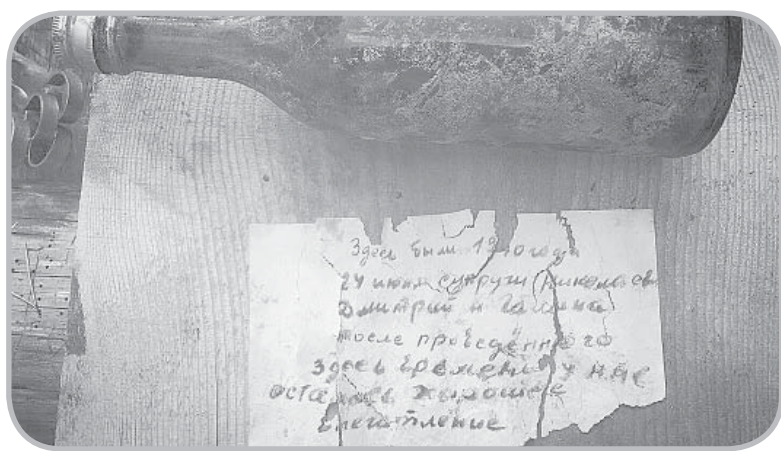 Здесь были 19 0 года
24 июня супруги Николаевы
Дмитрий и Галина
после проведённого
здесь времени у нас
осталось хорошее
впечатление